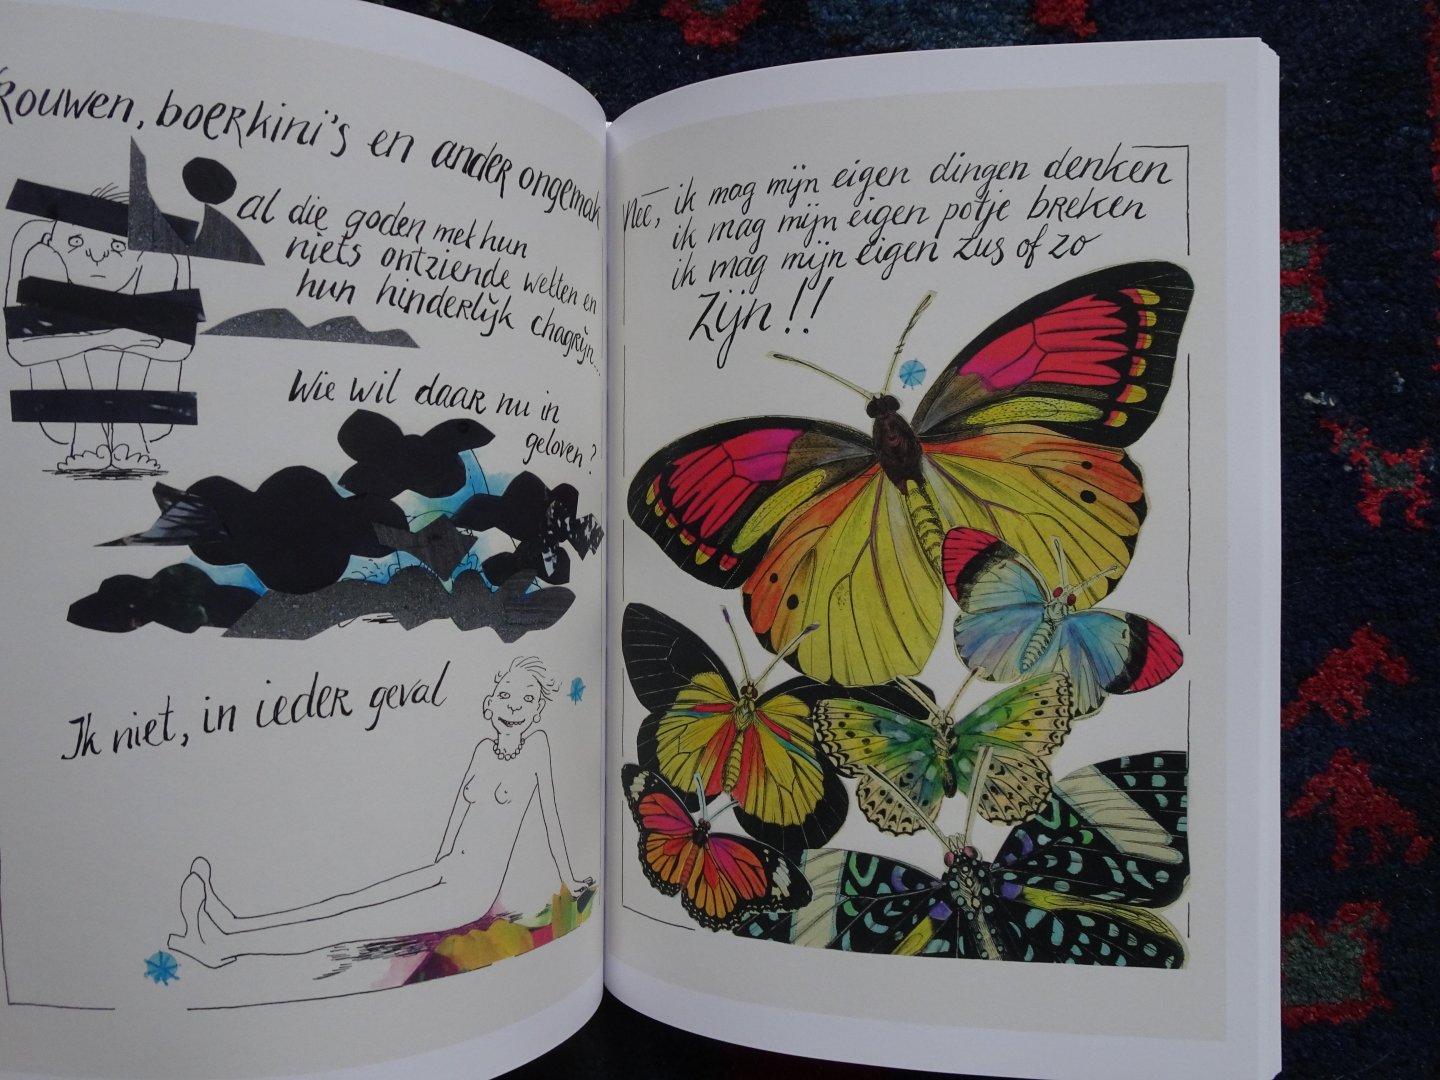 rouwen, boerkini's en ander ongemak
al die goden met hun
niets ontziende wetten en
hun hinderlijk chagrijn...
Wie wil daar nu in
geloven?
Ik niet, in ieder geval
Nee, ik mag mijn eigen dingen denken
ik mag mijn eigen potje breken
ik mag mijn eigen zus of zo
zijn!!